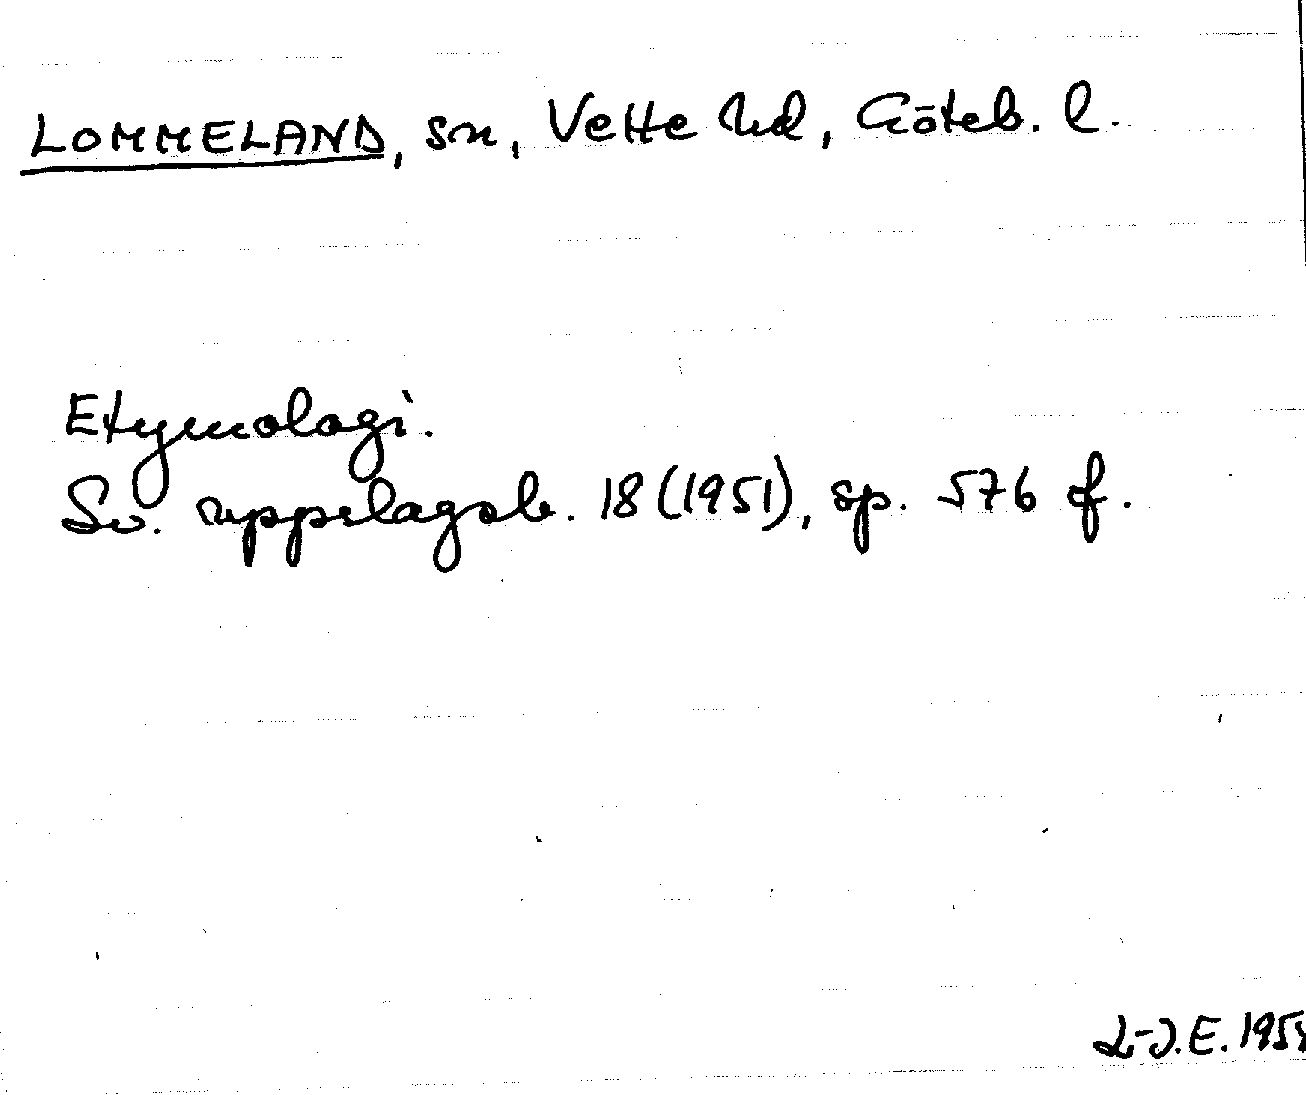 LOMMELAND, sn, Vette hd, Göteb. l.
Etymologi.
Sv. uppslagsb. 18 (1951), sp. 576 f.
L-J.E. 195